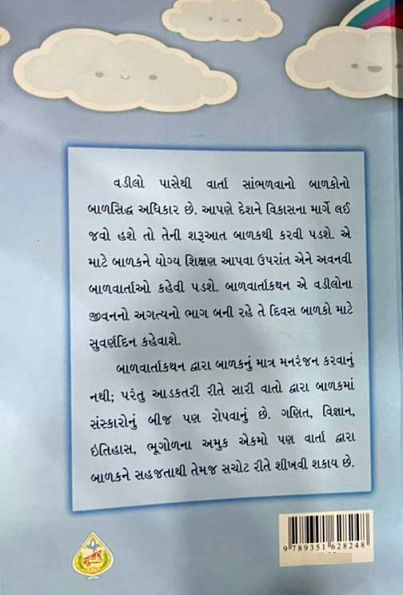 વડીલો પાસેથી વાર્તા સાંભળવાનો બાળકોનો
બાળસિદ્ધ અધિકાર છે. આપણે દેશને વિકાસના માર્ગે લઈ
જવો હશે તો તેની શરૂઆત બાળકથી કરવી પડશે. એ
માટે બાળકને યોગ્ય શિક્ષણ આપવા ઉપરાંત એને અવનવી
બાળવાર્તાઓ કહેવી પડશે. બાળવાર્તાકથન એ વડીલોના
જીવનનો અગત્યનો ભાગ બની રહે તે દિવસ બાળકો માટે
સુવર્ણદિન કહેવાશે.
બાળવાર્તાકથન દ્વારા બાળકનું માત્ર મનરંજન કરવાનું
નથી; પરંતુ આડકતરી રીતે સારી વાતો દ્વારા બાળકમાં
સંસ્કારોનું બીજ પણ રોપવાનું છે. ગણિત, વિજ્ઞાન,
ઇતિહાસ, ભૂગોળના અમુક એકમો પણ વાર્તા દ્વારા
બાળકને સહજતાથી તેમજ સચોટ રીતે શીખવી શકાય છે.
ગુર્જર
9 789351 628248